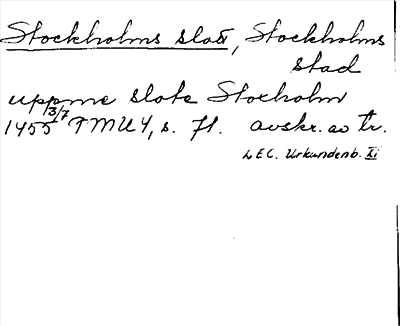 Stockholms slott, Stockholms
stad
uppme slote Stocholm
1455 3/7 FMU 4, s. 71. avskr. av tr.
LEC. Urkundenb. XI